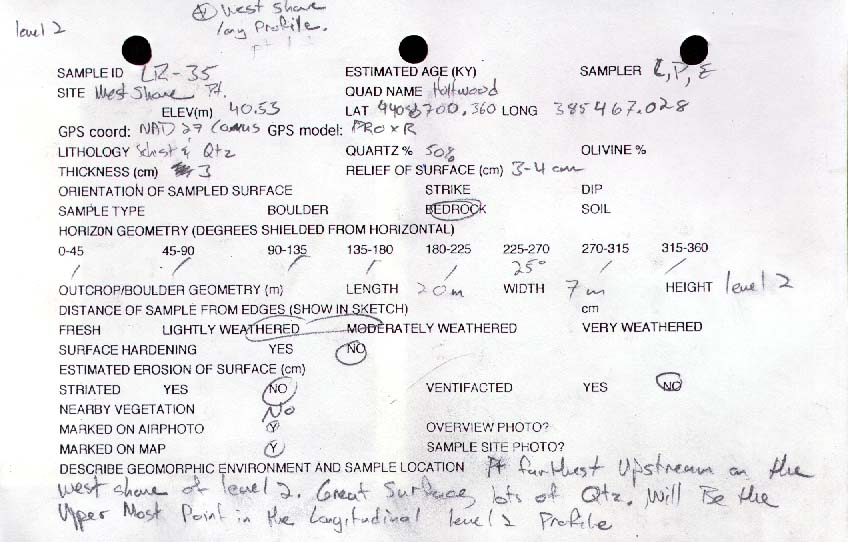 level 2
West Shore
long Profile.
SAMPLE ID LR-35 ESTIMATED AGE (KY) SAMPLER L, P, E
SITE West Shore Pt. QUAD NAME Holtwood
ELEV(m) 40.53 LAT 4408700.360 LONG 385467.028
GPS coord: NAD 27 Conus GPS model: PRO XR
LITHOLOGY Schist & Qtz QUARTZ % 50% OLIVINE %
THICKNESS (cm) 3 RELIEF OF SURFACE (cm) 3-4 cm
ORIENTATION OF SAMPLED SURFACE STRIKE DIP
SAMPLE TYPE BOULDER BEDROCK SOIL
HORIZON GEOMETRY (DEGREES SHIELDED FROM HORIZONTAL)
0-45 45-90 90-135 135-180 180-225 225-270 270-315 315-360
/ / / / / 25° / /
OUTCROP/BOULDER GEOMETRY (m) LENGTH 20m WIDTH 7m HEIGHT level 2
DISTANCE OF SAMPLE FROM EDGES (SHOW IN SKETCH) cm
FRESH LIGHTLY WEATHERED MODERATELY WEATHERED VERY WEATHERED
SURFACE HARDENING YES NO
ESTIMATED EROSION OF SURFACE (cm)
STRIATED YES NO VENTIFACTED YES NO
NEARBY VEGETATION No
MARKED ON AIRPHOTO Y OVERVIEW PHOTO?
MARKED ON MAP Y SAMPLE SITE PHOTO?
DESCRIBE GEOMORPHIC ENVIRONMENT AND SAMPLE LOCATION Pt furthest Upstream on the
west shore of level 2. Great Surface, lots of Qtz. Will Be the
Upper Most Point in the Longitudinal level 2 Profile